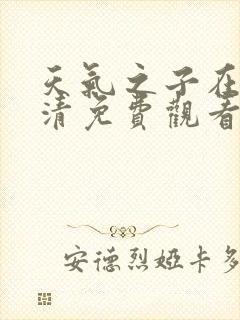 天氣之子在
清免費觀看
安德烈婭卡多